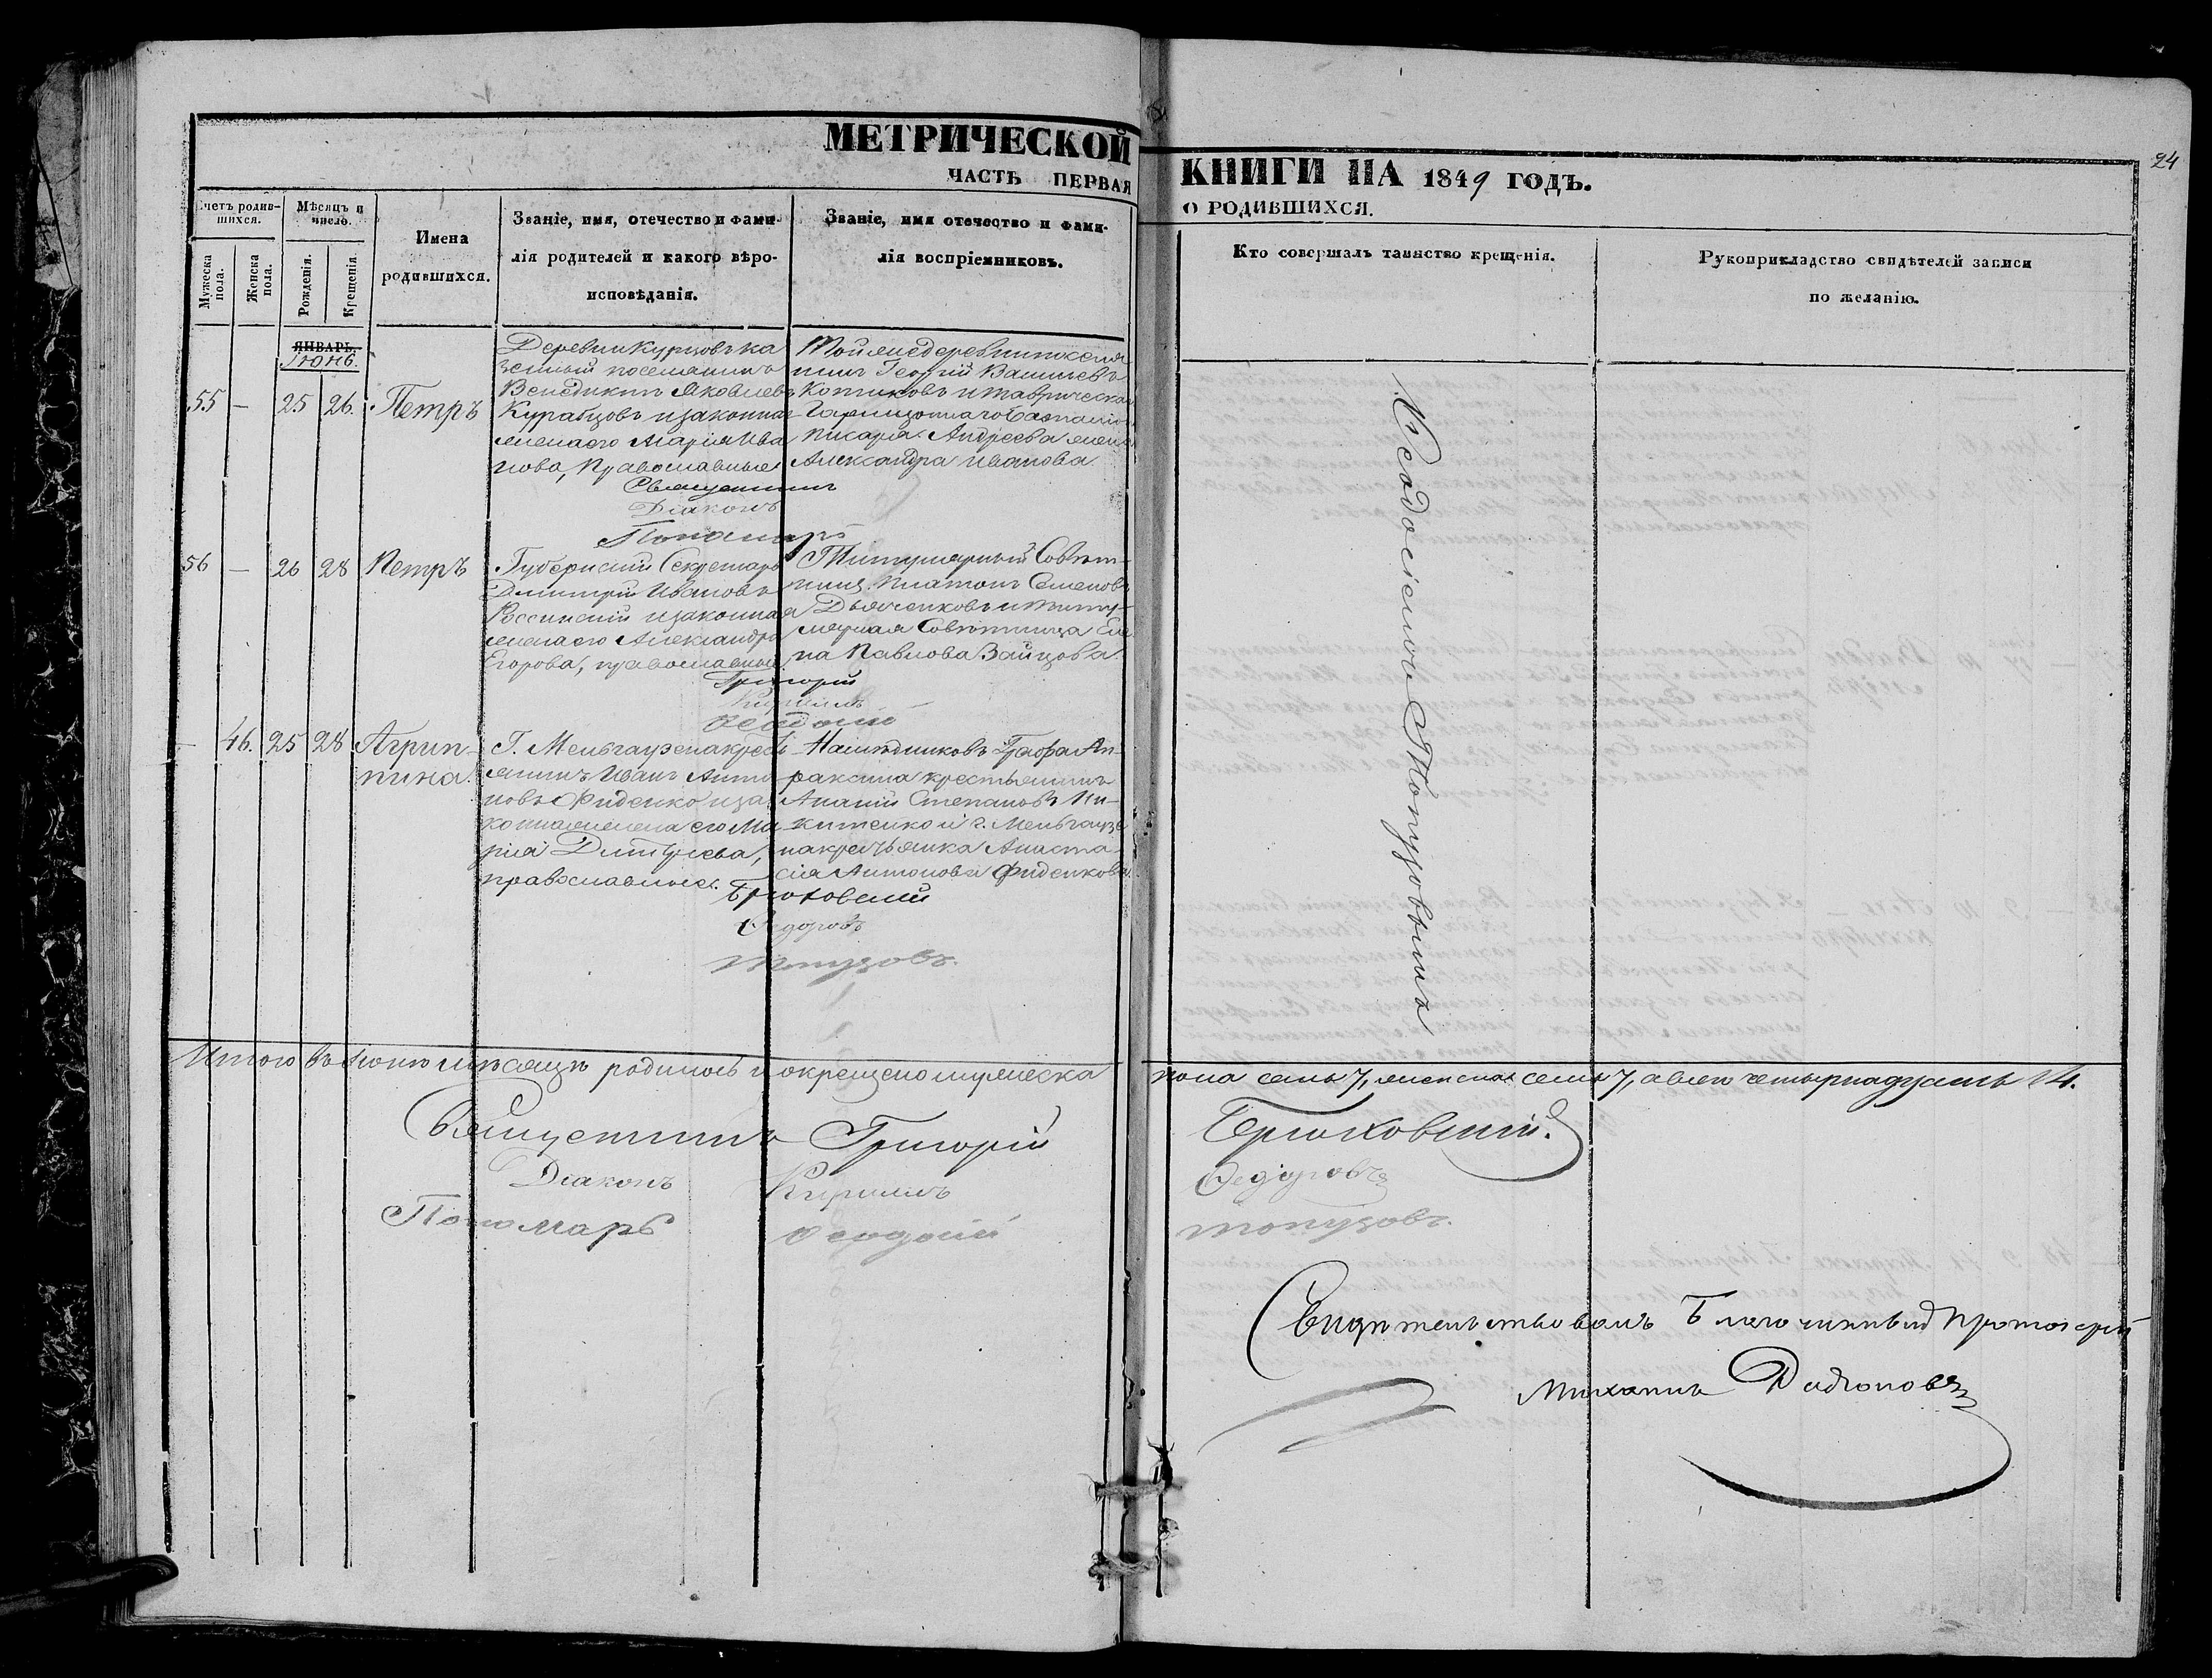 МЕТРИЧЕСКОЙ
ЧАСТЬ ПЕРВАЯ
КНИГИ НА 1849 ГОДЪ.
О РОДИВШИХСЯ.
24
Счетъ родив-
шихся.
Мужеска
пола.
Женска
пола.
Мѣсяцъ и
число.
Рожденія.
Крещенія.
Имена
родившихся.
Званіе, имя, отечество и фами-
лія родителей и какого вѣро-
исповѣданія.
Званіе, имя отечество и фами-
лія воспріемниковъ.
Кто совершалъ таинство крещенія.
Рукоприкладство свидѣтелей записи
по желанію.
ЯНВАРЬ.
Іюнь.
55 — 25 26. Петръ
Деревни Курцовъ ка
зенный поселянинъ
Венедиктъ Яковлевъ
и законная
жена его Марія Ива
нова, Православные
Той же деревни поселя
нинъ Георгій Васильевъ
Котиковъ и Таврическаго
Гарнизоннаго Баталіо
писаря Андреева жена
Александра Иванова
Священникъ
Діаконъ
Пономарь
56 — 26 28 Петръ
Губернскій Секретарь
Димитрій Ивановъ
Россинскій и законная
жена его Александра
Егорова, православные
Титулярный Совѣт-
никъ Платонъ Семеновъ
Дьяченковъ и титу-
лярная Совѣтница Еле
на Павлова Зайцова.
Григорій
Кириллъ
Феодосій
— 46. 25 28 Агрип-
пина.
Г. Мельгаузена крест
янинъ Иванъ Анто
новъ Фиденко и за
конная жена его Ма
рія Дмитріева,
православные.
Наслѣдниковъ Графа Ап-
раксина крестьянинъ
Ананій Степановъ Ни-
китенко и г. Мельгаузе
на крестьянка Анаста
сія Антонова Фиденкова
Брюховскій
Федоровъ
Топузовъ.
съ Пономаремъ
Феодосіемъ Топузовымъ
Итого въ Іюнѣ мѣсяцѣ родилось и окрещено мужеска
пола семь 7, женска семь 7, а всего четырнадцать 14.
Священникъ Григорій Брюховскій.
Діаконъ Кириллъ Федоровъ
Пономарь Феодосій Топузовъ.
Свидѣтельствовалъ Благочинный Протоіерей
Михаилъ Родіоновъ